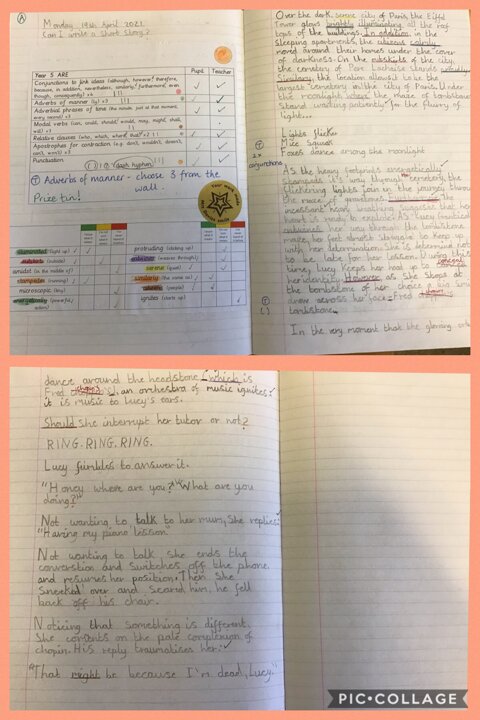 Monday 19th April 2021.
Can I write a Short Story?
Year 5 ARE
Pupil
Teacher
Conjunctions to link ideas (although, however, therefore, because, in addition, nevertheless, similarly, furthermore, even though, consequently) x4
Adverbs of manner (ly) x3
Adverbial phrases of time
Modal verbs (can, could, should, would, may, might, shall, will) x3
Relative clauses (who, which, where, that) x2
Apostrophes for contraction (e.g. don't, wouldn't, doesn't, can't, won't) x3
Punctuation
Adverbs of manner - choose 3 from the wall.
Prize tin!
illuminated (light up)
outskirts (outside)
amidst (in the middle of)
stampedes (running)
microscopic (tiny)
energetically (powerful action)
protruding (sticking up)
serene (quiet)
similarly (the same as)
citizens (people)
ignites (starts up)
Over the dark, serene city of Paris, the Eiffel
Tower glows brightly illuminating all the roof
tops of the buildings. In addition in the
sleeping apartments, the citizens calmly
moved around their homes under the cover
of darkness. On the outskirts of the city,
the cemetery of Pere Lachaise stands
Similarly, the location allows it to be the
largest cemetery in the city of Paris. Under
the moonlight where the maze of tombstones
Stand waiting patiently for the flurry of
light...
Lights flicker
Mice squeak
Foxes dance among the moonlight
2x conjunctions
As the heavy footprints energetically
Stampede its way through the cemetery, the
flickering lights join in the journey through
the maze of gravestones.
incessant heart vibrating
heart is ready to explode. As Lucy frantically
her way through the tombstones
make her feet almost struggle to keep up
with her determination. She is determined not
to be late for her lesson. During this
time, Lucy Keeps her head up to conceal
her identity. However as she stops at
the tombstone of her choice a big smile
draw across her face - Fred
tombstone.
In the very moment that the glowing
dance around the headstone (which is
Fred chopin's), an orchestra of music ignites:
it is music to Lucy's ears.
Should she interrupt her tutor or not?
RING. RING. RING.
Lucy fumbles to answer it.
"Honey where are you? What are you
doing?"
Not wanting to talk to her mum, she replies:
"Having my piano lesson."
Not wanting to talk, she ends the
converstion and switches off the phone,
and resumes her position. Then she
sneeked over and scared him, he fell
back off his chair.
Noticing that something is different,
She coments on the pale complexion of
chopin. His reply traumatises her:
"That might be because I'm dead, Lucy."
PIC•COLLAGE